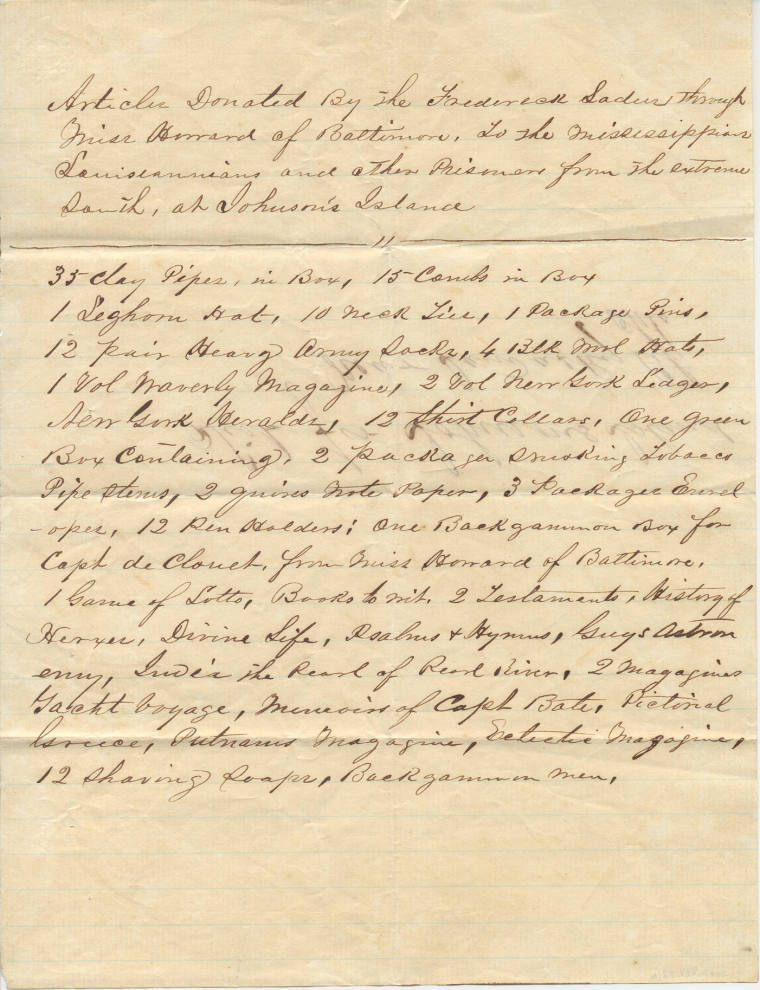 Articles Donated By the Frederick Ladies through
Miss Howard of Baltimore, To the Mississippians
Louisiannians and other Prisoners from the extreme
South, at Johnson's Island
35 Clay Pipes, in Box, 15 Combs in Box
1 Leghorn Hat, 10 Neck Ties, 1 Package Pins,
12 pair Heavy Army Socks, 4 Blk Wool Hats,
1 Vol Waverly Magazine, 2 Vol New York Ledger,
New York Heralds, 12 Shirt Collars, One green
Box Containing, 2 packages smoking Tobacco
Pipe stems, 2 quires Note Paper, 3 Packages Envel
-opes, 12 Pen Holders; One Backgammon Box for
Capt de Clouet, from Miss Howard of Baltimore,
1 Game of Lotto, Books to wit. 2 Testaments, History of
Xerxes, Divine Life, Psalms & Hymns, Guys Astron
omy, Inez the Pearl of Pearl River, 2 Magazines
Yacht Voyage, Memoirs of Capt Bate, Pictorial
Greece, Putnams Magazine, Eclectic Magazine,
12 Shaving Soaps, Backgammon men,